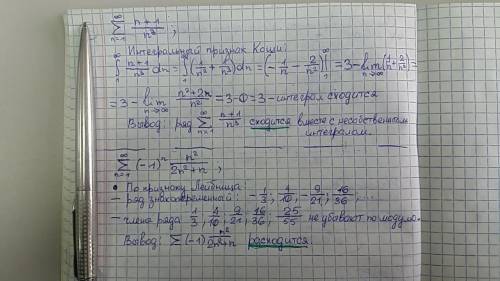 ∑_{n=1}^{∞} (n+1)/n³ ;
Интегральный признак Коши:
∫_1^∞ (n+1)/n³ dn = ∫_1^∞ (1/n² + 1/n³) dn = (-1/n - 2/n²)|_1^∞ = 3 - lim_{n→∞} (1/n + 2/n²) =
= 3 - lim_{n→∞} (n²+2n)/n² = 3 - 0 = 3 - интеграл сходится
Вывод: ряд ∑_{n=1}^{∞} (n+1)/n³ сходится вместе с несобственным
интегралом.
∑_{n=1}^{∞} (-1)^n n²/(2n²+n) ;
• По признаку Лейбница:
— ряд знакопеременный: -1/3; 4/10; -9/21; 16/36, ...
— члены ряда 1/3; 4/10; 9/21; 16/36; 25/55 не убывают по модулю.
Вывод: ∑ (-1)^n n²/(2n²+n) расходится.